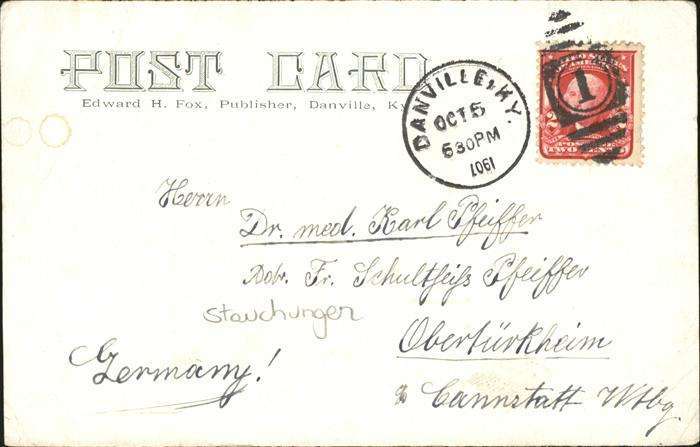 POST CARD
Edward H. Fox, Publisher, Danville, Ky.
DANVILLE, KY.
OCT 5
530PM
1907
1
TWO CENTS
Herrn
Dr. med. Karl Pfeiffer
Fr. Schultheiß Pfeiffer
Stauchungen
Obertürkheim
Cannstatt Wtbg
Germany!